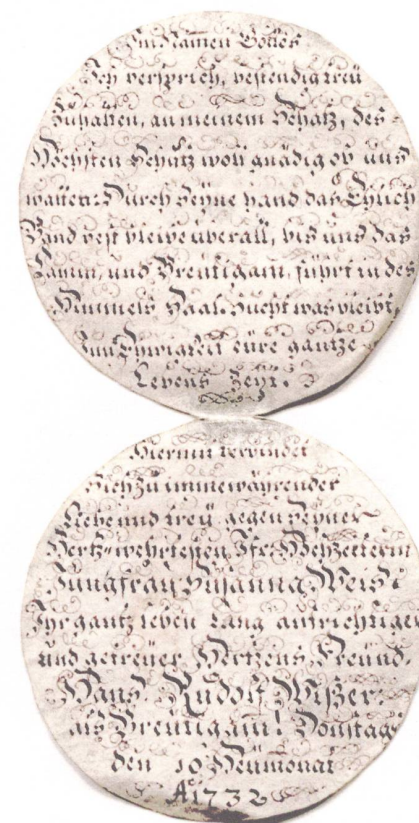 Im Namen Gottes
Ich versprich, bestendig treü
Zuhalten, an meinem Schatz, des-
Höchsten Schutz woll gnädig ob uns
walten: Durch seyne hand das Ehlich
Band vest bleibe überall, bis uns das
Lamm, und Breutigam, führt in des
Himmels Saal. Sucht was bleibt,
Zun Ewigkeit eüre gantze
Lebens Zeyt.
Hiermit verbindet
Sich zu immewährender
Liebe und treü gegen seyner
Hertz-wehrtesten
Jungfrau Susanna Weis:
Ihr gantz leben Lang aufrichtiger
und getreüer Hertzens Freünd
Hans Rudolf Wißer.
als Breutigam! Donstags
den 10 Heümonat
A° 1732